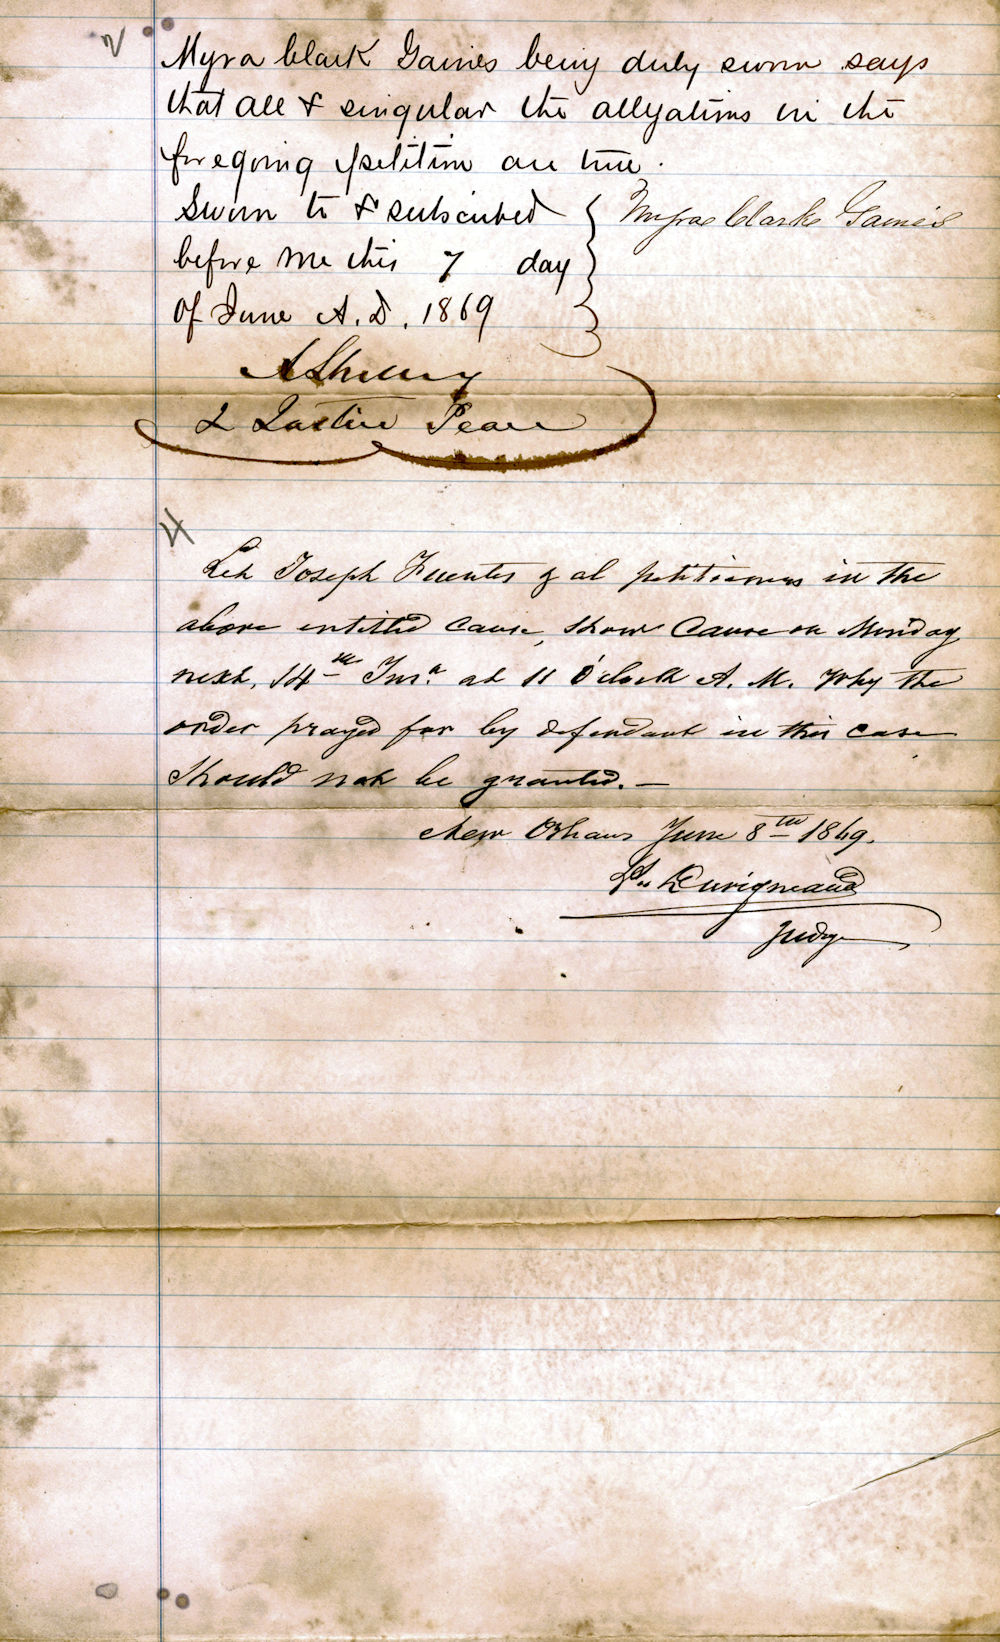 2
Myra Clark Gaines being duly sworn says
that all & singular the allegations in the
foregoing petition are true.
Sworn to & subscribed
before me this 7 day
of June A.D. 1869
Myra Clarke Gaines
2 Justice Peace
4
Let Joseph Fuentes & al petitioners in the
above entitled cause, show cause on Monday
next, 14th Inst. at 11 O'clock A.M. Why the
order prayed for by defendant in this case
should not be granted. —
New Orleans June 8th 1869.
Ls. Duvigneaud
Judge